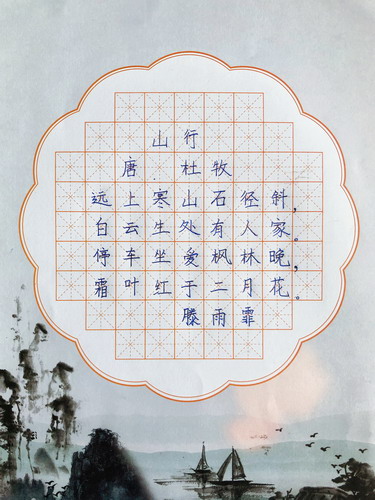 山行
唐 杜牧
远上寒山石径斜，
白云生处有人家。
停车坐爱枫林晚，
霜叶红于二月花。
滕雨霏